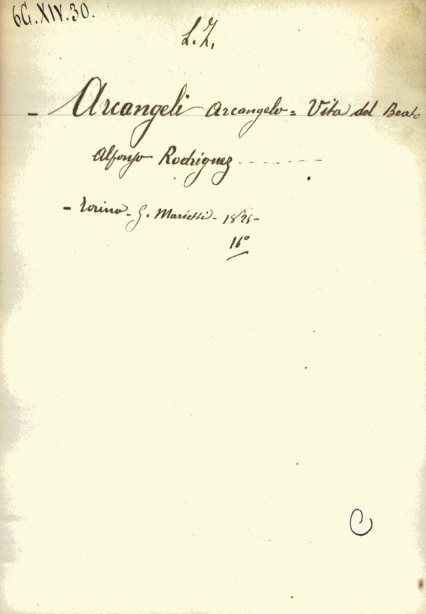 6G.XIV.30.
L.Z.
- Arcangeli Arcangelo = Vita del Beato
Alfonso Rodriguez - - - - - -
- Torino - G. Marietti -
16º
C